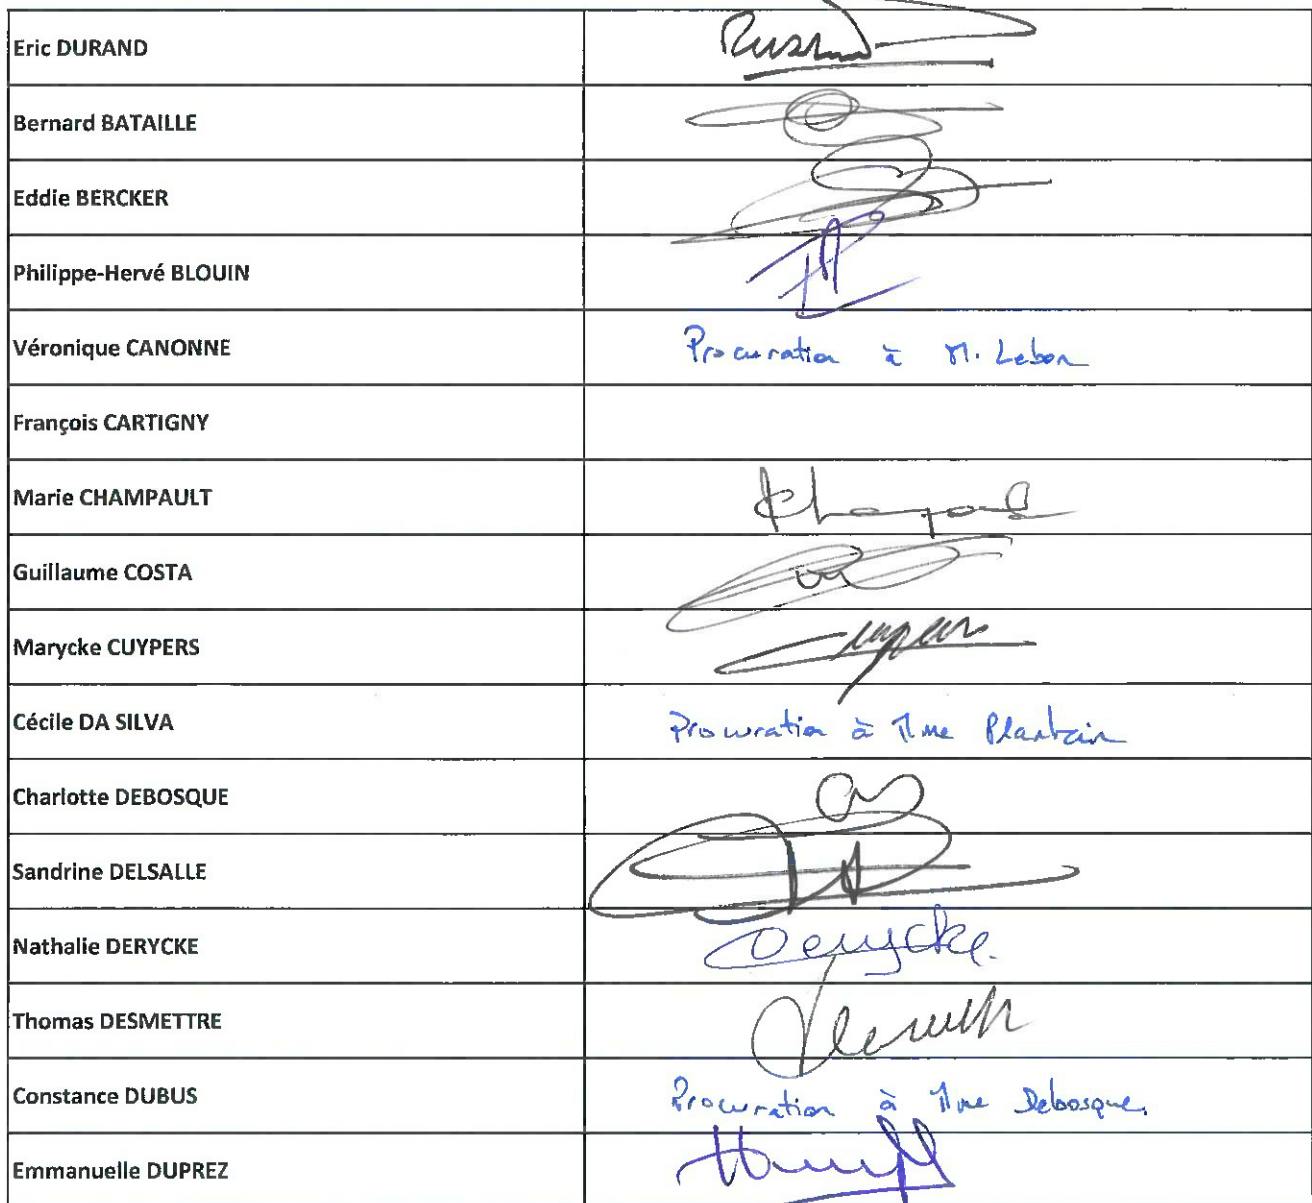 Eric DURAND
Bernard BATAILLE
Eddie BERCKER
Philippe-Hervé BLOUIN
Véronique CANONNE Procuration à M. Lebon
François CARTIGNY
Marie CHAMPAULT
Guillaume COSTA
Marycke CUYPERS
Cécile DA SILVA Procuration à Mme Plantain
Charlotte DEBOSQUE
Sandrine DELSALLE
Nathalie DERYCKE Derycke
Thomas DESMETTRE
Constance DUBUS Procuration à Mme Debosque.
Emmanuelle DUPREZ